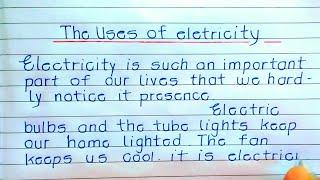 The Uses of eletricity
Electricity is such an important
part of our lives that we hard-
ly notice it presence.
Electric
bulbs and the tube lights keep
our home lighted. The fan
keeps us cool. it is electric